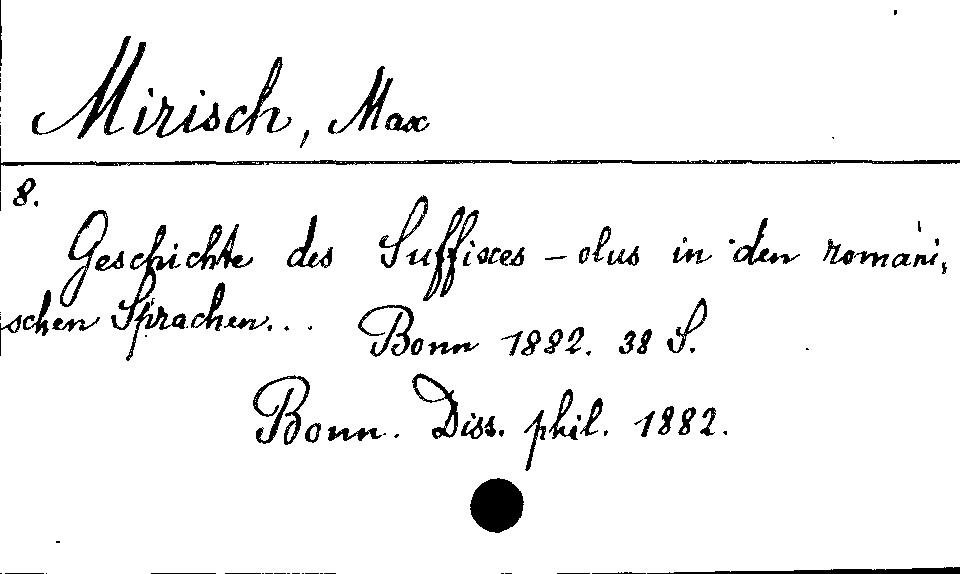 Mirisch, Max
8.
Geschichte des Suffixes -olus in den romani-
schen Sprachen...
Bonn 1882. 38 S.
Bonn. Diss. phil. 1882.